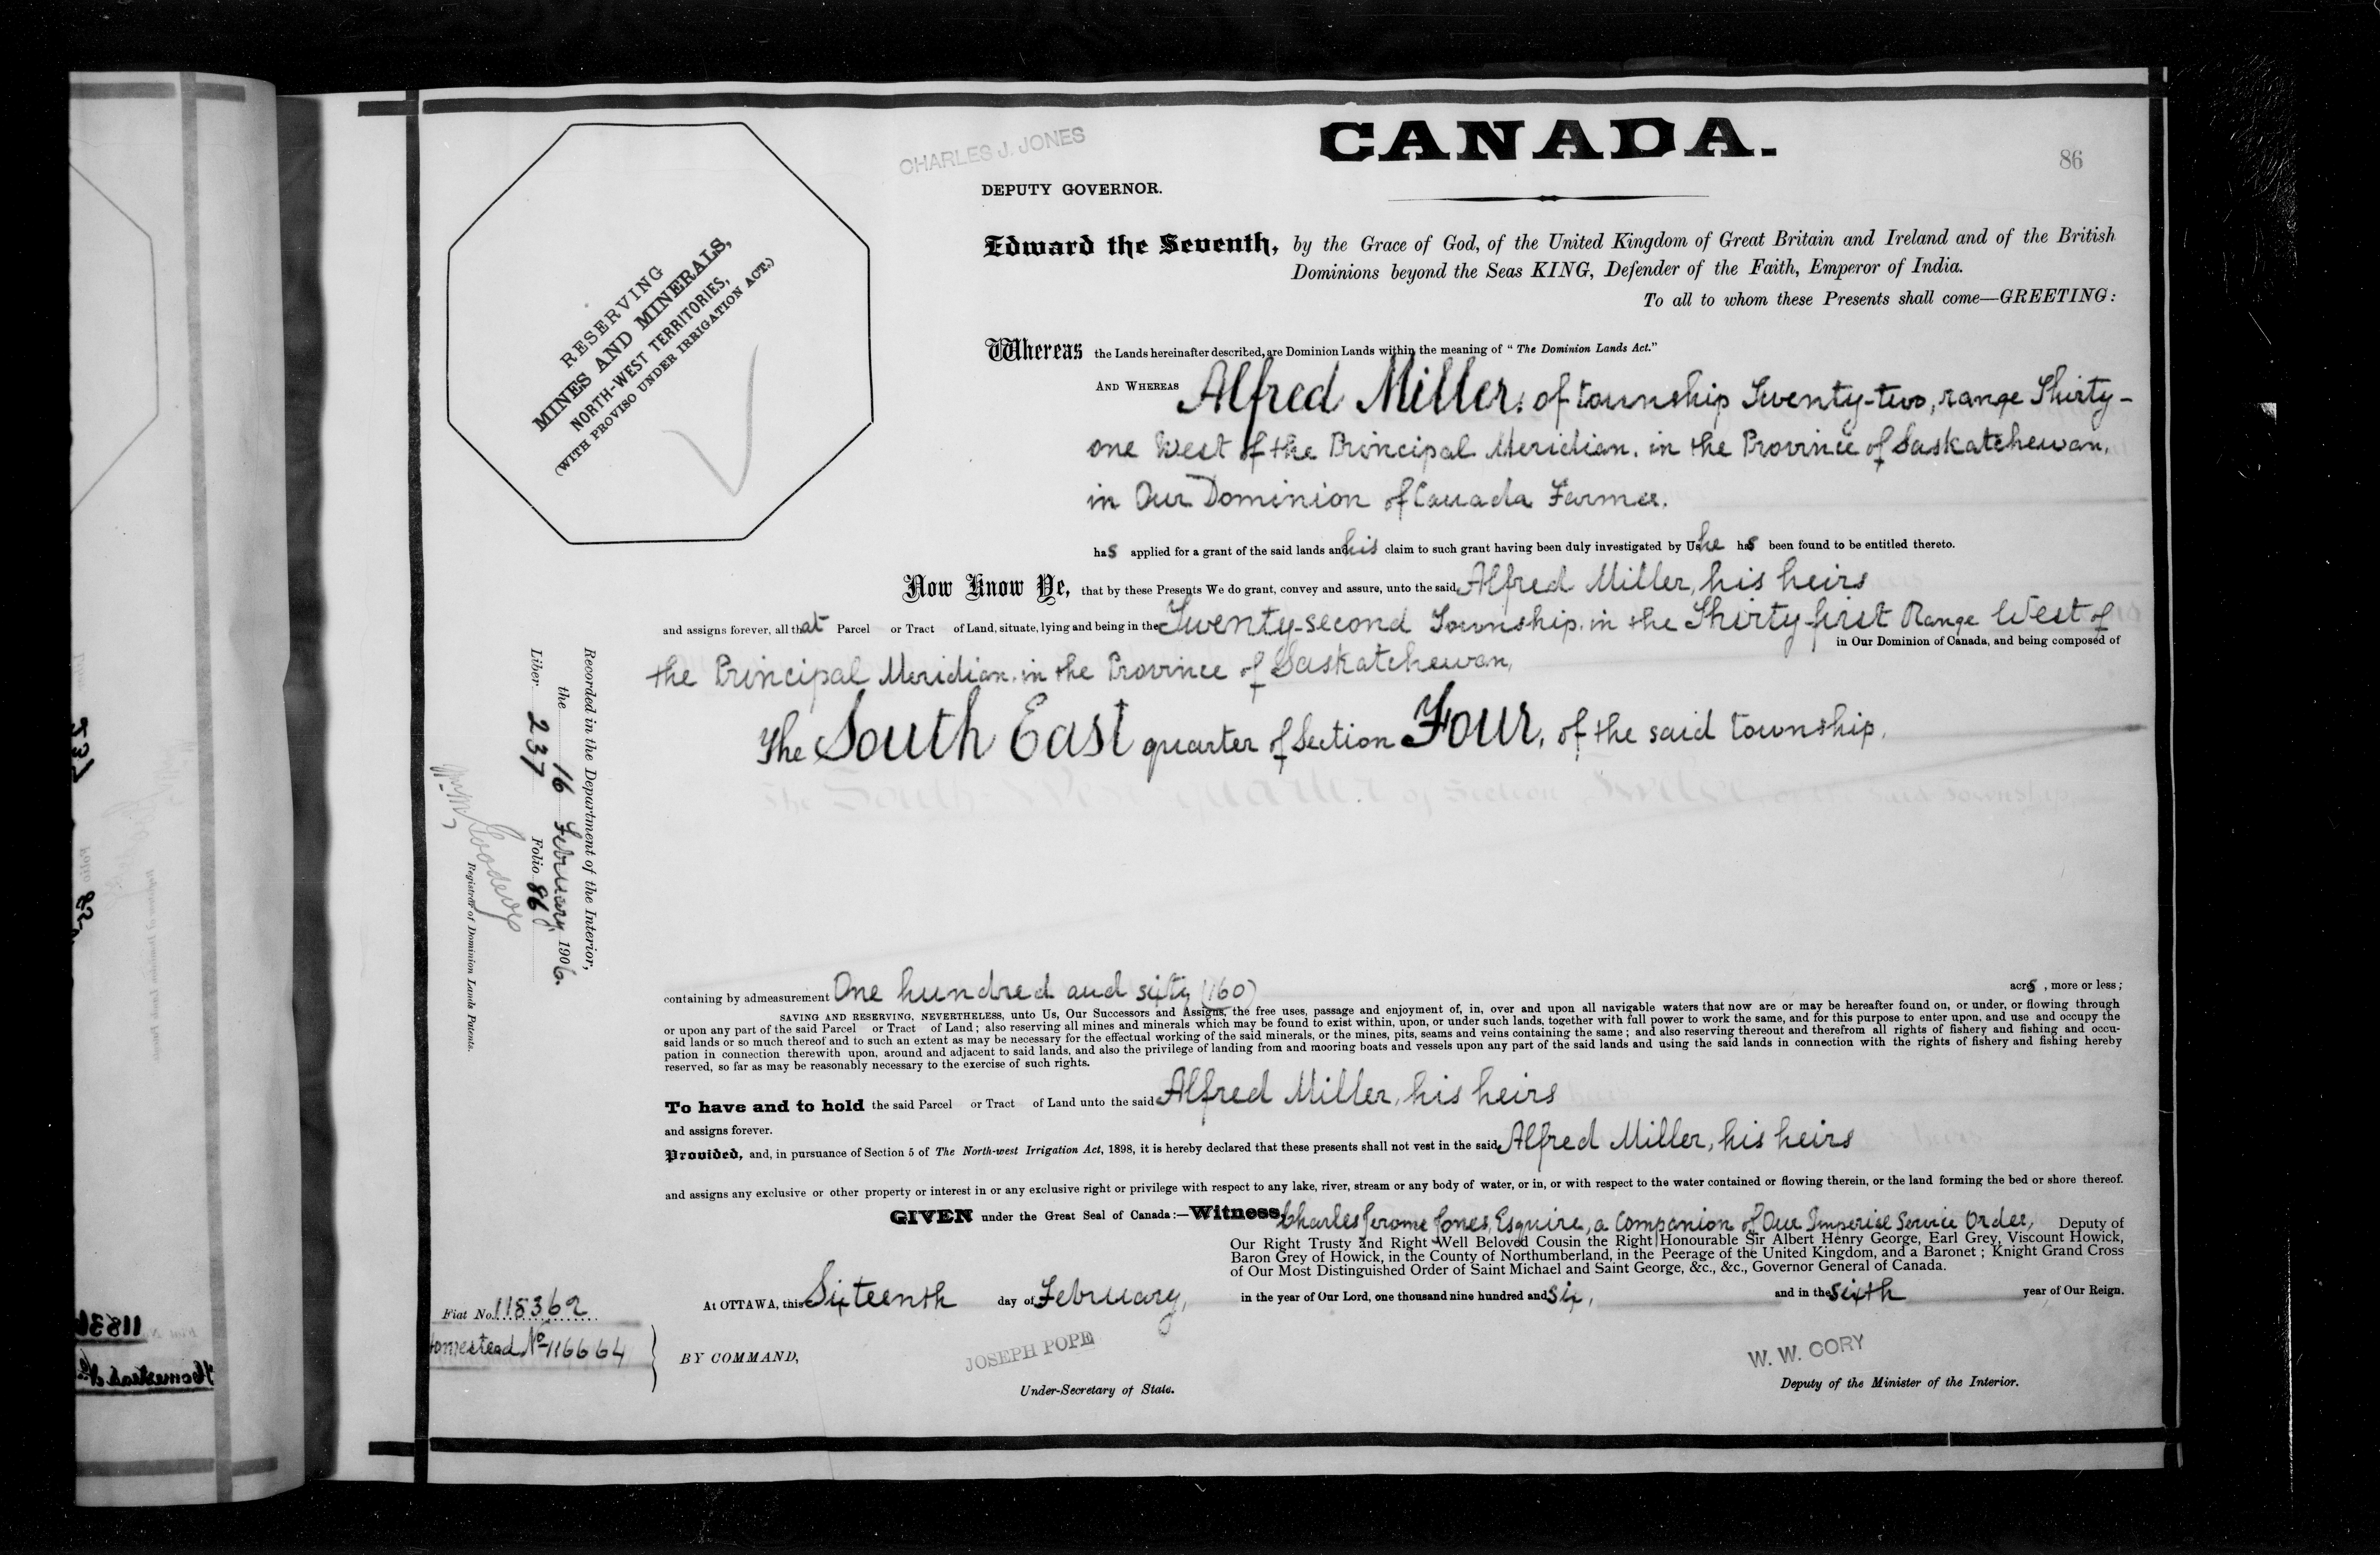 CHARLES J. JONES
CANADA.
86
DEPUTY GOVERNOR.
RESERVING
MINES AND MINERALS,
NORTH-WEST TERRITORIES,
(WITH PROVISO UNDER IRRIGATION ACT.)
Edward the Seventh, by the Grace of God, of the United Kingdom of Great Britain and Ireland and of the British
Dominions beyond the Seas KING, Defender of the Faith, Emperor of India.
To all to whom these Presents shall come—GREETING:
Whereas the Lands hereinafter described, are Dominion Lands within the meaning of "The Dominion Lands Act."
AND WHEREAS Alfred Miller, of township Twenty-two, range Thirty-
one West of the Principal Meridian, in the Province of Saskatchewan,
in Our Dominion of Canada Farmer.
has applied for a grant of the said lands and his claim to such grant having been duly investigated by Us he has been found to be entitled thereto.
Now Know Ye, that by these Presents We do grant, convey and assure, unto the said Alfred Miller, his heirs
and assigns forever, all that Parcel or Tract of Land, situate, lying and being in the Twenty-second Township, in the Thirty-first Range West of
in Our Dominion of Canada, and being composed of
the Principal Meridian, in the Province of Saskatchewan,
The South East quarter of Section Four, of the said township.
Recorded in the Department of the Interior,
the 16 February 1906.
Liber 237 Folio 86
Registrar of Dominion Lands Patents.
containing by admeasurement One hundred and sixty (160) acres, more or less;
SAVING AND RESERVING, NEVERTHELESS, unto Us, Our Successors and Assigns, the free uses, passage and enjoyment of, in, over and upon all navigable waters that now are or may be hereafter found on, or under, or flowing through
or upon any part of the said Parcel or Tract of Land; also reserving all mines and minerals which may be found to exist within, upon, or under such lands, together with full power to work the same, and for this purpose to enter upon, and use and occupy the
said lands or so much thereof and to such an extent as may be necessary for the effectual working of the said minerals, or the mines, pits, seams and veins containing the same; and also reserving thereout and therefrom all rights of fishery and fishing and occu-
pation in connection therewith upon, around and adjacent to said lands, and also the privilege of landing from and mooring boats and vessels upon any part of the said lands and using the said lands in connection with the rights of fishery and fishing hereby
reserved, so far as may be reasonably necessary to the exercise of such rights.
To have and to hold the said Parcel or Tract of Land unto the said Alfred Miller, his heirs
and assigns forever.
Provided, and, in pursuance of Section 5 of The North-west Irrigation Act, 1898, it is hereby declared that these presents shall not vest in the said Alfred Miller, his heirs
and assigns any exclusive or other property or interest in or any exclusive right or privilege with respect to any lake, river, stream or any body of water, or in, or with respect to the water contained or flowing therein, or the land forming the bed or shore thereof.
GIVEN under the Great Seal of Canada:—Witness, Charles Jerome Jones, Esquire, a Companion of Our Imperial Service Order, Deputy of
Our Right Trusty and Right Well Beloved Cousin the Right Honourable Sir Albert Henry George, Earl Grey, Viscount Howick,
Baron Grey of Howick, in the County of Northumberland, in the Peerage of the United Kingdom, and a Baronet; Knight Grand Cross
of Our Most Distinguished Order of Saint Michael and Saint George, &c., &c., Governor General of Canada.
At OTTAWA, this Sixteenth day of February, in the year of Our Lord, one thousand nine hundred and six, and in the sixth year of Our Reign.
Fiat No. 118369
Homestead No 116664
BY COMMAND,
JOSEPH POPE
Under-Secretary of State.
W. W. CORY
Deputy of the Minister of the Interior.